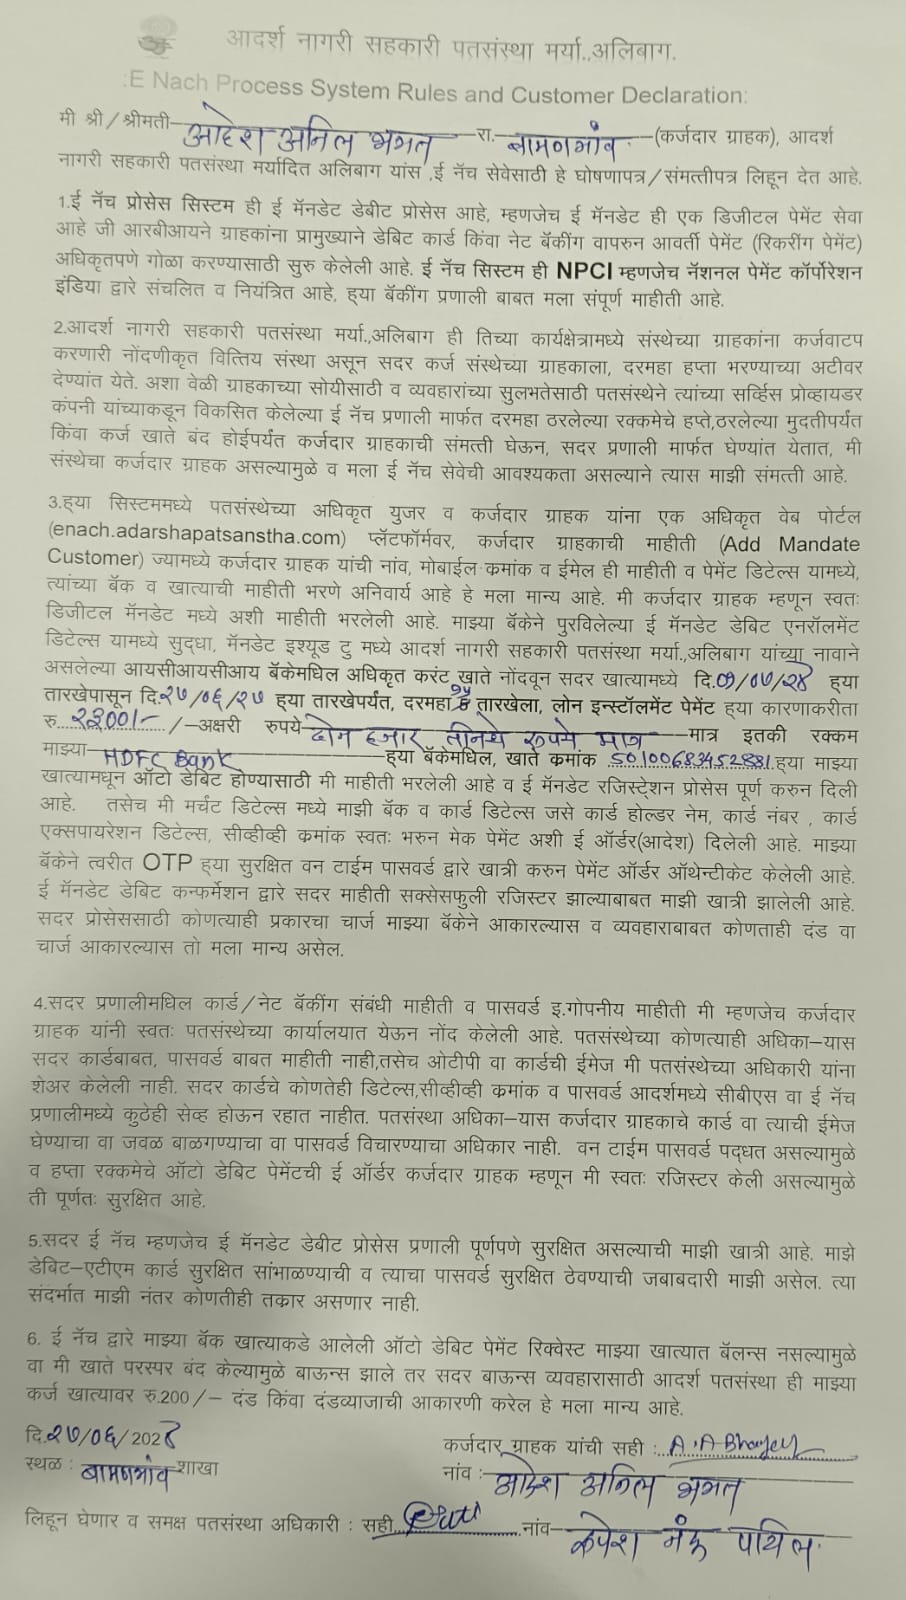 आदर्श नागरी सहकारी पतसंस्था मर्या.,अलिबाग.
:E Nach Process System Rules and Customer Declaration:
मी श्री/श्रीमती आदेश अनिल भगत रा. बामणगांव (कर्जदार ग्राहक), आदर्श
नागरी सहकारी पतसंस्था मर्यादित अलिबाग यांस ,ई नॅच सेवेसाठी हे घोषणापत्र/संमत्तीपत्र लिहून देत आहे.
1.ई नॅच प्रोसेस सिस्टम ही ई मॅनडेट डेबीट प्रोसेस आहे, म्हणजेच ई मॅनडेट ही एक डिजीटल पेमेंट सेवा
आहे जी आरबीआयने ग्राहकांना प्रामुख्याने डेबिट कार्ड किंवा नेट बॅकींग वापरुन आवर्ती पेमेंट (रिकरींग पेमेंट)
अधिकृतपणे गोळा करण्यासाठी सुरु केलेली आहे. ई नॅच सिस्टम ही NPCI म्हणजेच नॅशनल पेमेंट कॉर्पोरेशन
इंडिया द्वारे संचलित व नियंत्रित आहे, ह्या बॅकींग प्रणाली बाबत मला संपूर्ण माहीती आहे.
2.आदर्श नागरी सहकारी पतसंस्था मर्या.,अलिबाग ही तिच्या कार्यक्षेत्रामध्ये संस्थेच्या ग्राहकांना कर्जवाटप
करणारी नोंदणीकृत वित्तिय संस्था असून सदर कर्ज संस्थेच्या ग्राहकाला, दरमहा हप्ता भरण्याच्या अटीवर
देण्यांत येते. अशा वेळी ग्राहकाच्या सोयीसाठी व व्यवहारांच्या सुलभतेसाठी पतसंस्थेने त्यांच्या सर्व्हिस प्रोव्हायडर
कंपनी यांच्याकडून विकसित केलेल्या ई नॅच प्रणाली मार्फत दरमहा ठरलेल्या रक्कमेचे हप्ते,ठरलेल्या मुदतीपर्यंत
किंवा कर्ज खाते बंद होईपर्यंत कर्जदार ग्राहकाची संमत्ती घेऊन, सदर प्रणाली मार्फत घेण्यांत येतात, मी
संस्थेचा कर्जदार ग्राहक असल्यामुळे व मला ई नॅच सेवेची आवश्यकता असल्याने त्यास माझी संमत्ती आहे.
3.ह्या सिस्टममध्ये पतसंस्थेच्या अधिकृत युजर व कर्जदार ग्राहक यांना एक अधिकृत वेब पोर्टल
(enach.adarshapatsanstha.com) प्लॅटफॉर्मवर, कर्जदार ग्राहकाची माहीती (Add Mandate
Customer) ज्यामध्ये कर्जदार ग्राहक यांची नांव, मोबाईल क्रमांक व ईमेल ही माहीती व पेमेंट डिटेल्स यामध्ये,
त्यांच्या बॅक व खात्याची माहीती भरणे अनिवार्य आहे हे मला मान्य आहे. मी कर्जदार ग्राहक म्हणून स्वतः
डिजीटल मॅनडेट मध्ये अशी माहीती भरलेली आहे. माझ्या बॅकेने पुरविलेल्या ई मॅनडेट डेबिट एनरॉलमेंट
डिटेल्स यामध्ये सुद्धा, मॅनडेट इश्यूड टु मध्ये आदर्श नागरी सहकारी पतसंस्था मर्या.,अलिबाग यांच्या नावाने
असलेल्या आयसीआयसीआय बॅकेमधिल अधिकृत करंट खाते नोंदवून सदर खात्यामध्ये दि.०१/०७/२४ ह्या
तारखेपासून दि.२७/०६/२७ ह्या तारखेपर्यंत, दरमहा तारखेला, लोन इन्स्टॉलमेंट पेमेंट ह्या कारणाकरीता
रु २३००/- /-अक्षरी रुपये दोन हजार तीनशे रुपये मात्र मात्र इतकी रक्कम
माझ्या HDFC Bank ह्या बॅकेमधिल, खाते क्रमांक 50100683452881 ह्या माझ्या
खात्यामधून ऑटो डेबिट होण्यासाठी मी माहीती भरलेली आहे व ई मॅनडेट रजिस्ट्रेशन प्रोसेस पूर्ण करुन दिली
आहे. तसेच मी मर्चंट डिटेल्स मध्ये माझी बॅक व कार्ड डिटेल्स जसे कार्ड होल्डर नेम, कार्ड नंबर , कार्ड
एक्सपायरेशन डिटेल्स, सीव्हीव्ही क्रमांक स्वतः भरुन मेक पेमेंट अशी ई ऑर्डर(आदेश) दिलेली आहे. माझ्या
बॅकेने त्वरीत OTP ह्या सुरक्षित वन टाईम पासवर्ड द्वारे खात्री करुन पेमेंट ऑर्डर ऑथेन्टीकेट केलेली आहे.
ई मॅनडेट डेबिट कन्फर्मेशन द्वारे सदर माहीती सक्सेसफुली रजिस्टर झाल्याबाबत माझी खात्री झालेली आहे.
सदर प्रोसेससाठी कोणत्याही प्रकारचा चार्ज माझ्या बॅकेने आकारल्यास व व्यवहाराबाबत कोणताही दंड वा
चार्ज आकारल्यास तो मला मान्य असेल.
4.सदर प्रणालीमधिल कार्ड/नेट बॅकींग संबंधी माहीती व पासवर्ड इ.गोपनीय माहीती मी म्हणजेच कर्जदार
ग्राहक यांनी स्वतः पतसंस्थेच्या कार्यालयात येऊन नोंद केलेली आहे. पतसंस्थेच्या कोणत्याही अधिका-यास
सदर कार्डबाबत, पासवर्ड बाबत माहीती नाही,तसेच ओटीपी वा कार्डची ईमेज मी पतसंस्थेच्या अधिकारी यांना
शेअर केलेली नाही. सदर कार्डचे कोणतेही डिटेल्स,सीव्हीव्ही क्रमांक व पासवर्ड आदर्शमध्ये सीबीएस वा ई नॅच
प्रणालीमध्ये कुठेही सेव्ह होऊन रहात नाहीत. पतसंस्था अधिका-यास कर्जदार ग्राहकाचे कार्ड वा त्याची ईमेज
घेण्याचा वा जवळ बाळगण्याचा वा पासवर्ड विचारण्याचा अधिकार नाही. वन टाईम पासवर्ड पद्धत असल्यामुळे
व हप्ता रक्कमेचे ऑटो डेबिट पेमेंटची ई ऑर्डर कर्जदार ग्राहक म्हणून मी स्वतः रजिस्टर केली असल्यामुळे
ती पूर्णतः सुरक्षित आहे.
5.सदर ई नॅच म्हणजेच ई मॅनडेट डेबीट प्रोसेस प्रणाली पूर्णपणे सुरक्षित असल्याची माझी खात्री आहे. माझे
डेबिट-एटीएम कार्ड सुरक्षित सांभाळण्याची व त्याचा पासवर्ड सुरक्षित ठेवण्याची जबाबदारी माझी असेल. त्या
संदर्भात माझी नंतर कोणतीही तक्रार असणार नाही.
6. ई नॅच द्वारे माझ्या बॅक खात्याकडे आलेली ऑटो डेबिट पेमेंट रिक्वेस्ट माझ्या खात्यात बॅलन्स नसल्यामुळे
वा मी खाते परस्पर बंद केल्यामुळे बाऊन्स झाले तर सदर बाऊन्स व्यवहारासाठी आदर्श पतसंस्था ही माझ्या
कर्ज खात्यावर रु.200/- दंड किंवा दंडव्याजाची आकारणी करेल हे मला मान्य आहे.
दि.२७/०६/202४ कर्जदार ग्राहक यांची सही :
स्थळ : बामणगांव शाखा नांव : आदेश अनिल भगत
लिहून घेणार व समक्ष पतसंस्था अधिकारी : सही नांव रुपेश नंदू पाटिल